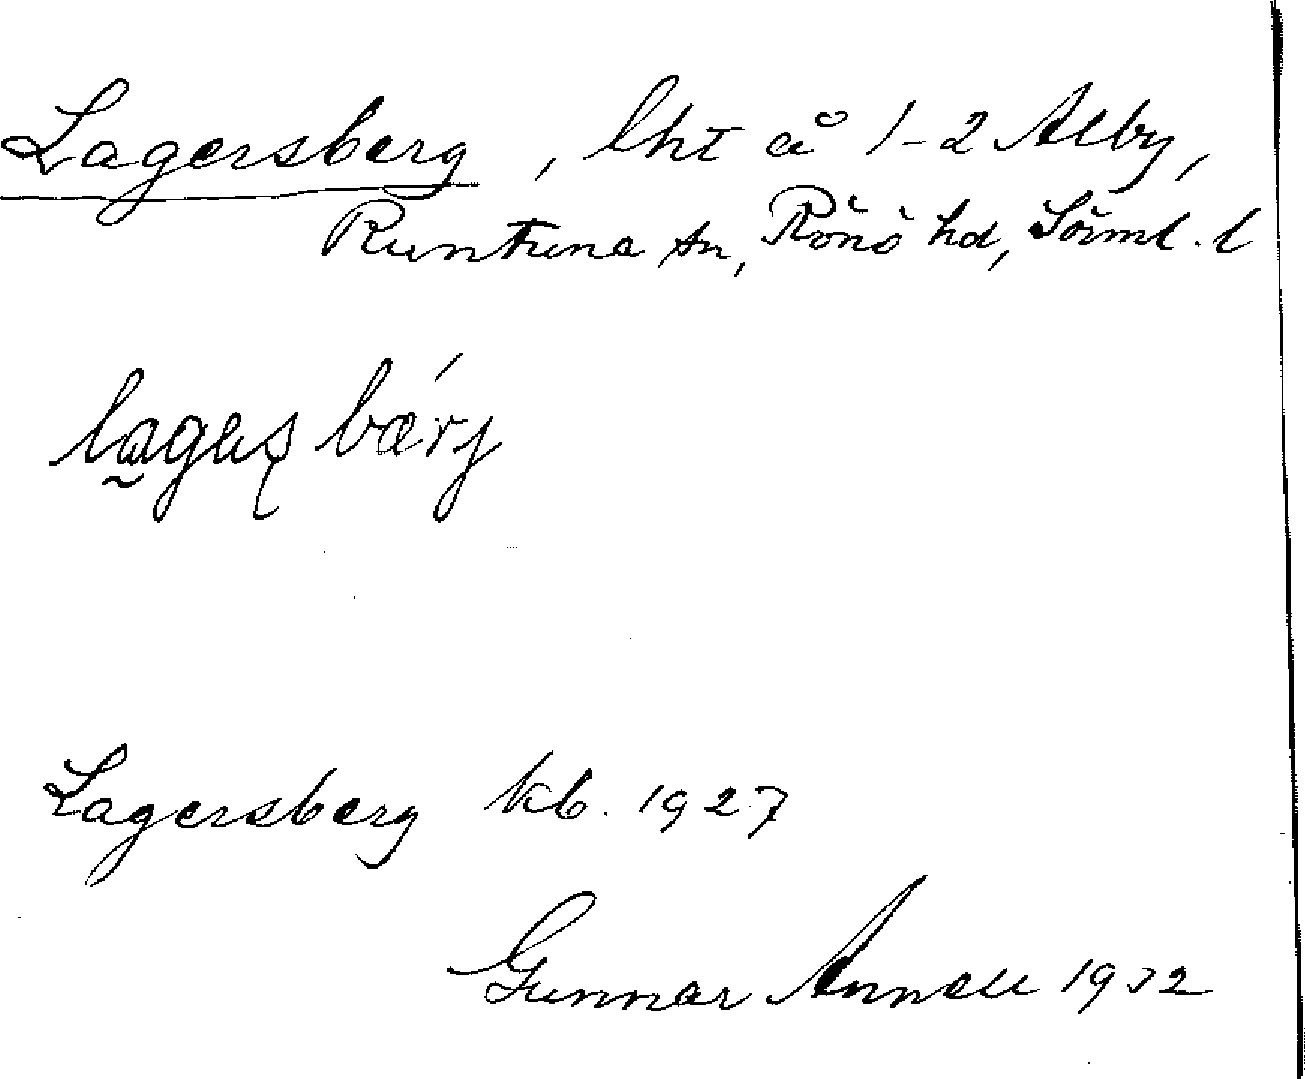 Lagersberg, lht å 1-2 Alby,
Runtuna sn, Rönö hd, Sörml. l
Lagersberg kb. 1927
Gunnar Annell 1932